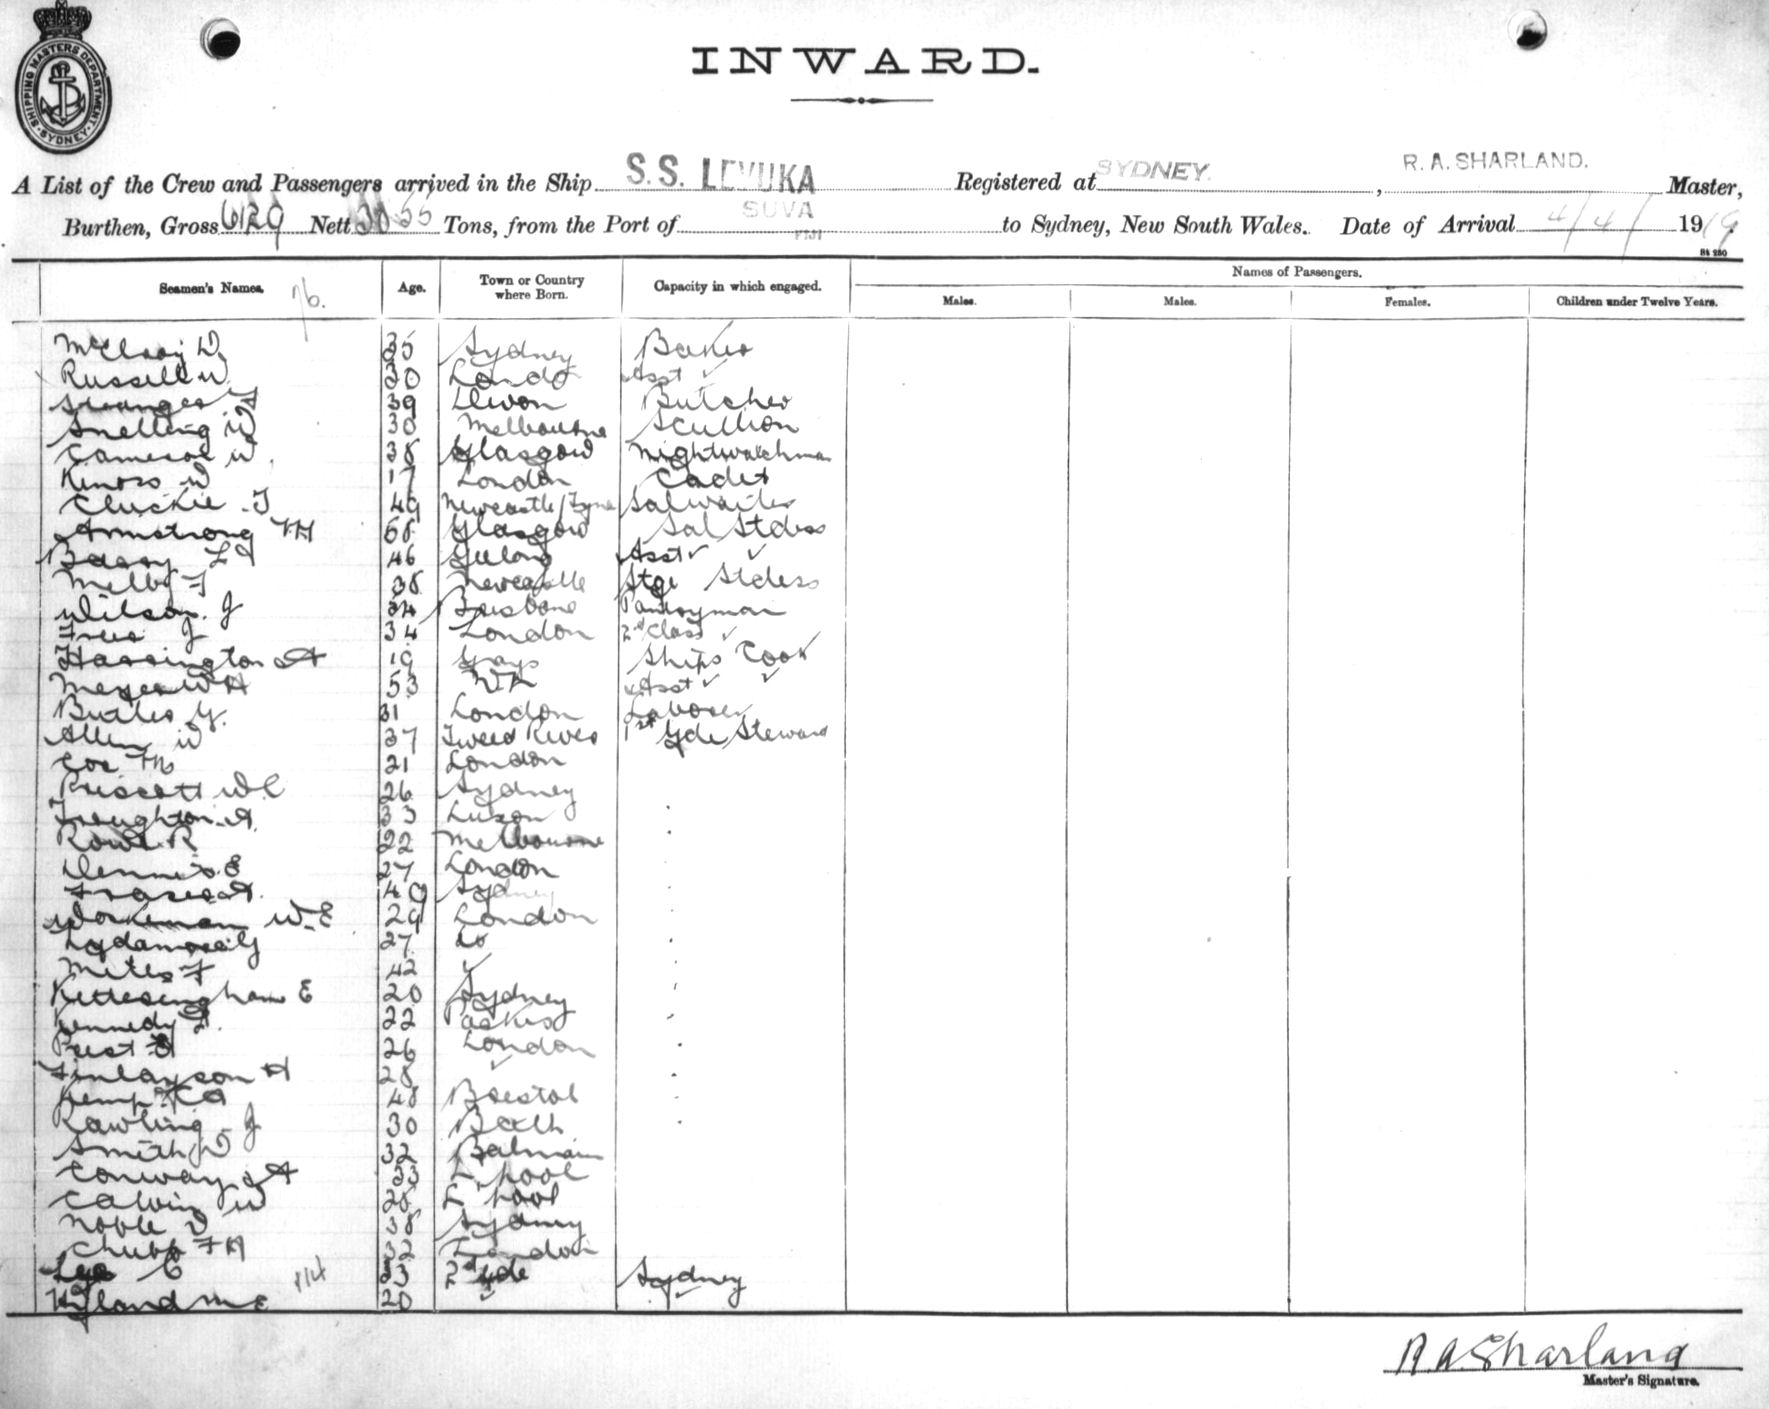 SHIPPING MASTERS DEPARTMENT
SYDNEY
INWARD.
A List of the Crew and Passengers arrived in the Ship S.S. LEVUKA Registered at SYDNEY. , R. A. SHARLAND. Master,
Burthen, Gross 6129 Nett Tons, from the Port of SUVA FIJI to Sydney, New South Wales. Date of Arrival 4/4/ 1919
Seamen's Names. 76. Age. Town or Country where Born. Capacity in which engaged. Names of Passengers.
Males. Males. Females. Children under Twelve Years.
McElroy D 35 Sydney Baker
Russell W 30 London Asst ✓
39 Devon Butcher
Snelling W 30 Melbourne Scullion
Cameron W 38 Glasgow Nightwatchman
Kinross W 17 London Cadet
Cluckie J 49 Newcastle/Tyne Salwaiter
Armstrong 58 Glasgow Sal Stdess
46 Geelong Asst ✓ ✓
Melby F 38 Newcastle Stge Stdess
Wilson J 34 Brisbane Pantryman
J 34 London 2nd Class ✓
Harrington A 19 Grays Ships Cook
53 Asst ✓ ✓
Butler G. 31 London Laborer
Allen W 37 Tweed River 1st Gde Steward
Cox 21 London
Priscott W.C 26 Sydney
Troughton A. 33 Luzon
Rowe R 22 Melbourne
Dennis E 27 London
Fraser A. 40 Sydney
Workman W.E 29 London
Lydamore G 27 do
F 42 ✓
Kettesingham E 20 Sydney
Kennedy 22 Parkes
26 London
Finlayson H 28 ✓
Kemp 48 Bristol
Rawling J 30 Bath
Smith W 32 Balmain
Conway A 33 L'pool
Calvin W 28 L'pool
Noble D 38 Sydney
Chubb F H 32 London
C 33 2nd Gde Sydney
Hyland M E 114 20 ✓ ✓
R A Sharland
Master's Signature.